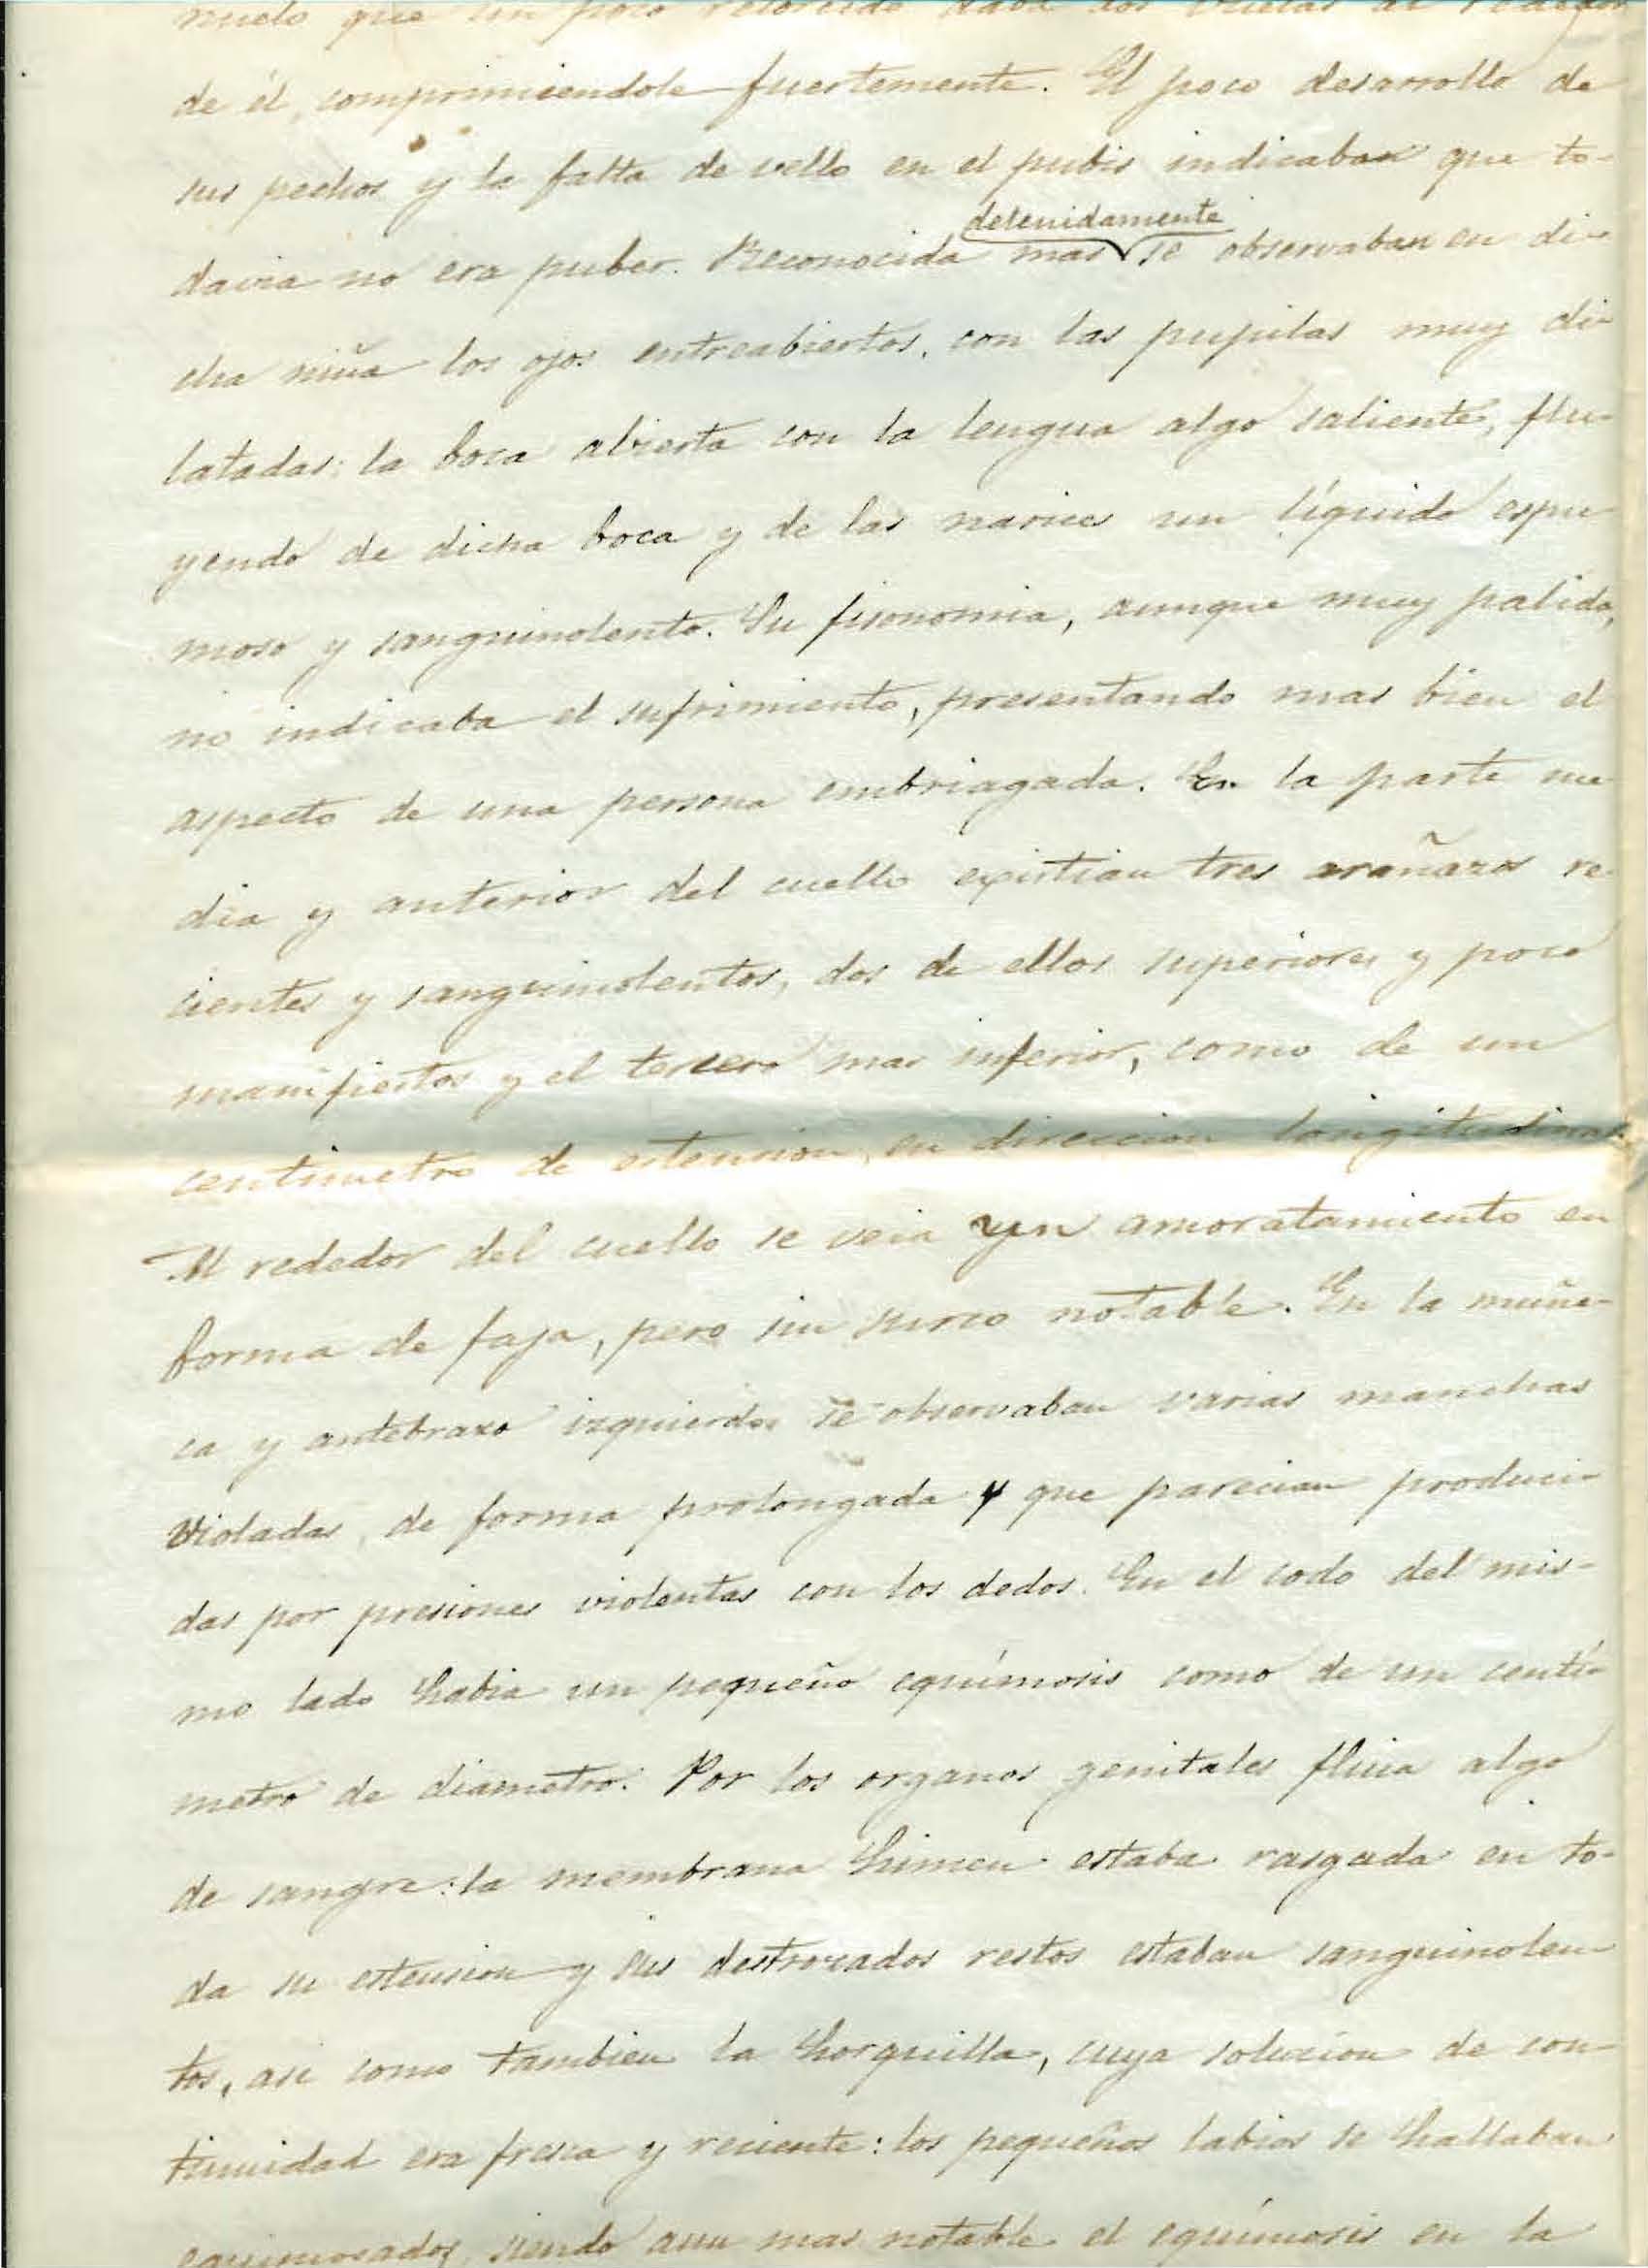 ñuelo que un poco retorcido daba dos vueltas al rededor
de él, comprimiendole fuertemente. El poco desarrollo de
sus pechos y la falta de vello en el pubis indicaban que to-
davia no era puber. Reconocida mas detenidamente se observaban en di-
cha niña los ojos entreabiertos, con las pupilas muy di-
latadas: la boca abierta con la lengua algo saliente, flu-
yendo de dicha boca y de las narices un líquido espu-
moso y sanguinolento. Su fisonomia, aunque muy palida,
no indicaba el sufrimiento, presentando mas bien el
aspecto de una persona embriagada. En la parte me-
dia y anterior del cuello existian tres arañazos re-
cientes y sanguinolentos, dos de ellos superiores y poco
manifiestos y el tercero mas inferior, como de un
centimetro de estension, en direccion longitudinal.
Al rededor del cuello se veia un amoratamiento en
forma de faja, pero sin surco notable. En la muñe-
ca y antebrazo izquierdos se observaban varias manchas
violadas, de forma prolongada y que parecian produci-
das por presiones violentas con los dedos. En el codo del mis-
mo lado habia un pequeño equímosis como de un centi-
metro de diametro. Por los organos genitales fluia algo
de sangre: la membrana himen estaba rasgada en to-
da su estension y sus destrozados restos estaban sanguinolen-
tos, asi como tambien la horquilla, cuya solucion de con-
tinuidad era fresca y reciente: los pequeños labios se hallaban
equimosados, siendo aun mas notable el equímosis en la